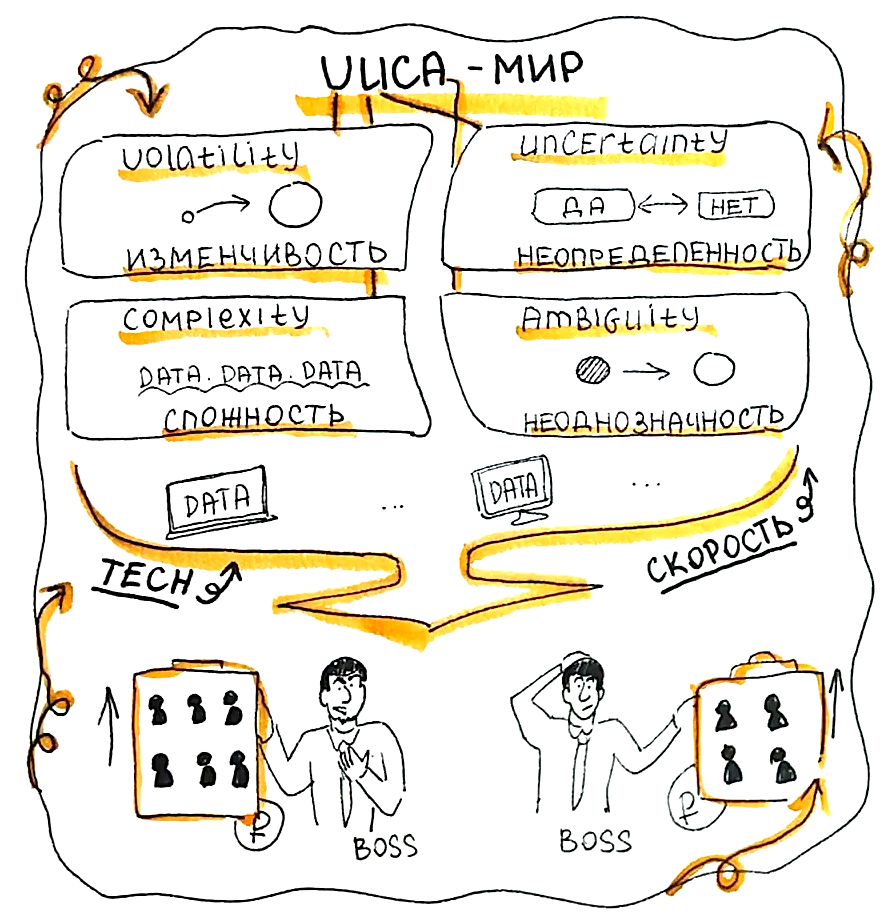 VUCA-МИР
VOLATILITY
ИЗМЕНЧИВОСТЬ
UNCERTAINTY
ДА НЕТ
НЕОПРЕДЕЛЕННОСТЬ
COMPLEXITY
DATA. DATA. DATA
СЛОЖНОСТЬ
AMBIGUITY
НЕОДНОЗНАЧНОСТЬ
DATA ... DATA ...
TECH
СКОРОСТЬ
₽
BOSS
BOSS
₽